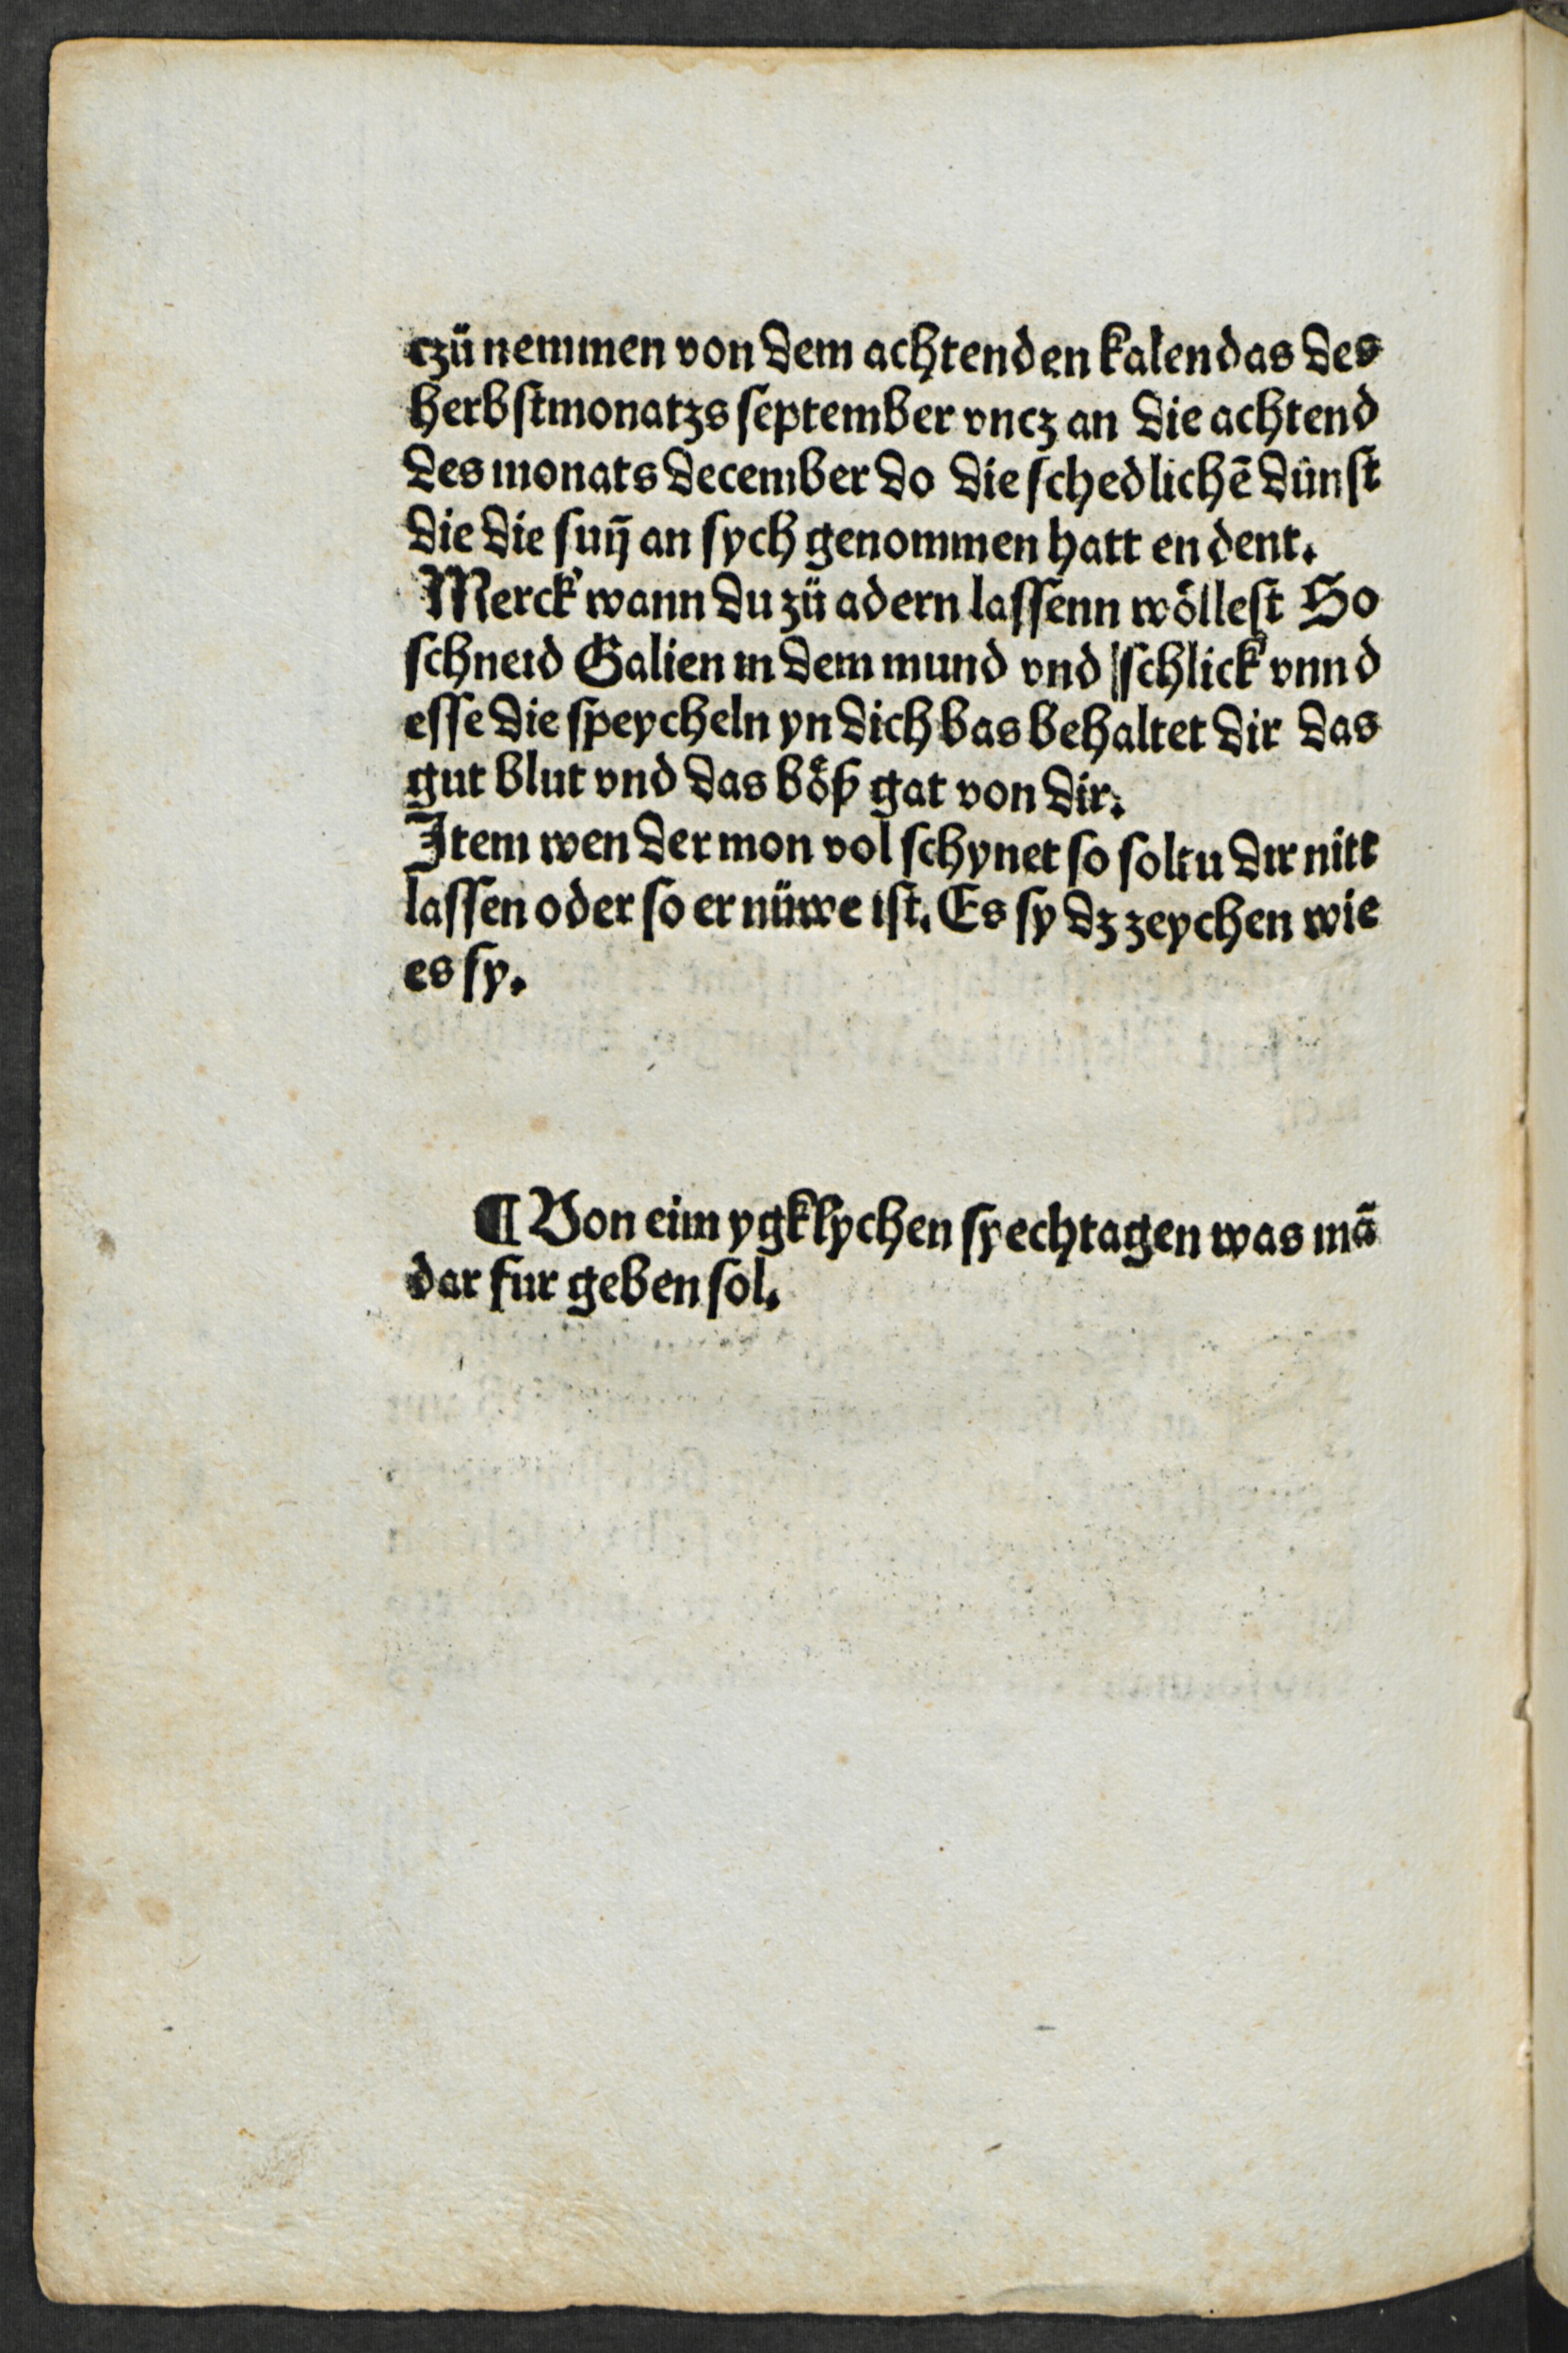 czü nemmen von dem achtenden kalendas des
herbſtmonatzs ſeptember vncz an die achtend
des monats december do die ſchedlichē dünſt
die die ſuñ an ſych genommen hatt en dent.
Merck wann du zü adern laſſenn wöllest So
ſchneid Galien in dem mund vnd ſchlick vnnd
eſſe die ſpeycheln yn dich bas behaltet dir das
gut blut vnd das böß gat von dir.
Item wen der mon vol ſchynet ſo ſoltu dir nitt
laſſen oder ſo er nüwe iſt. Es ſy dz zeychen wie
es ſy.
¶ Von eim ygklychen ſyechtagen was mā
dar fur geben ſol.